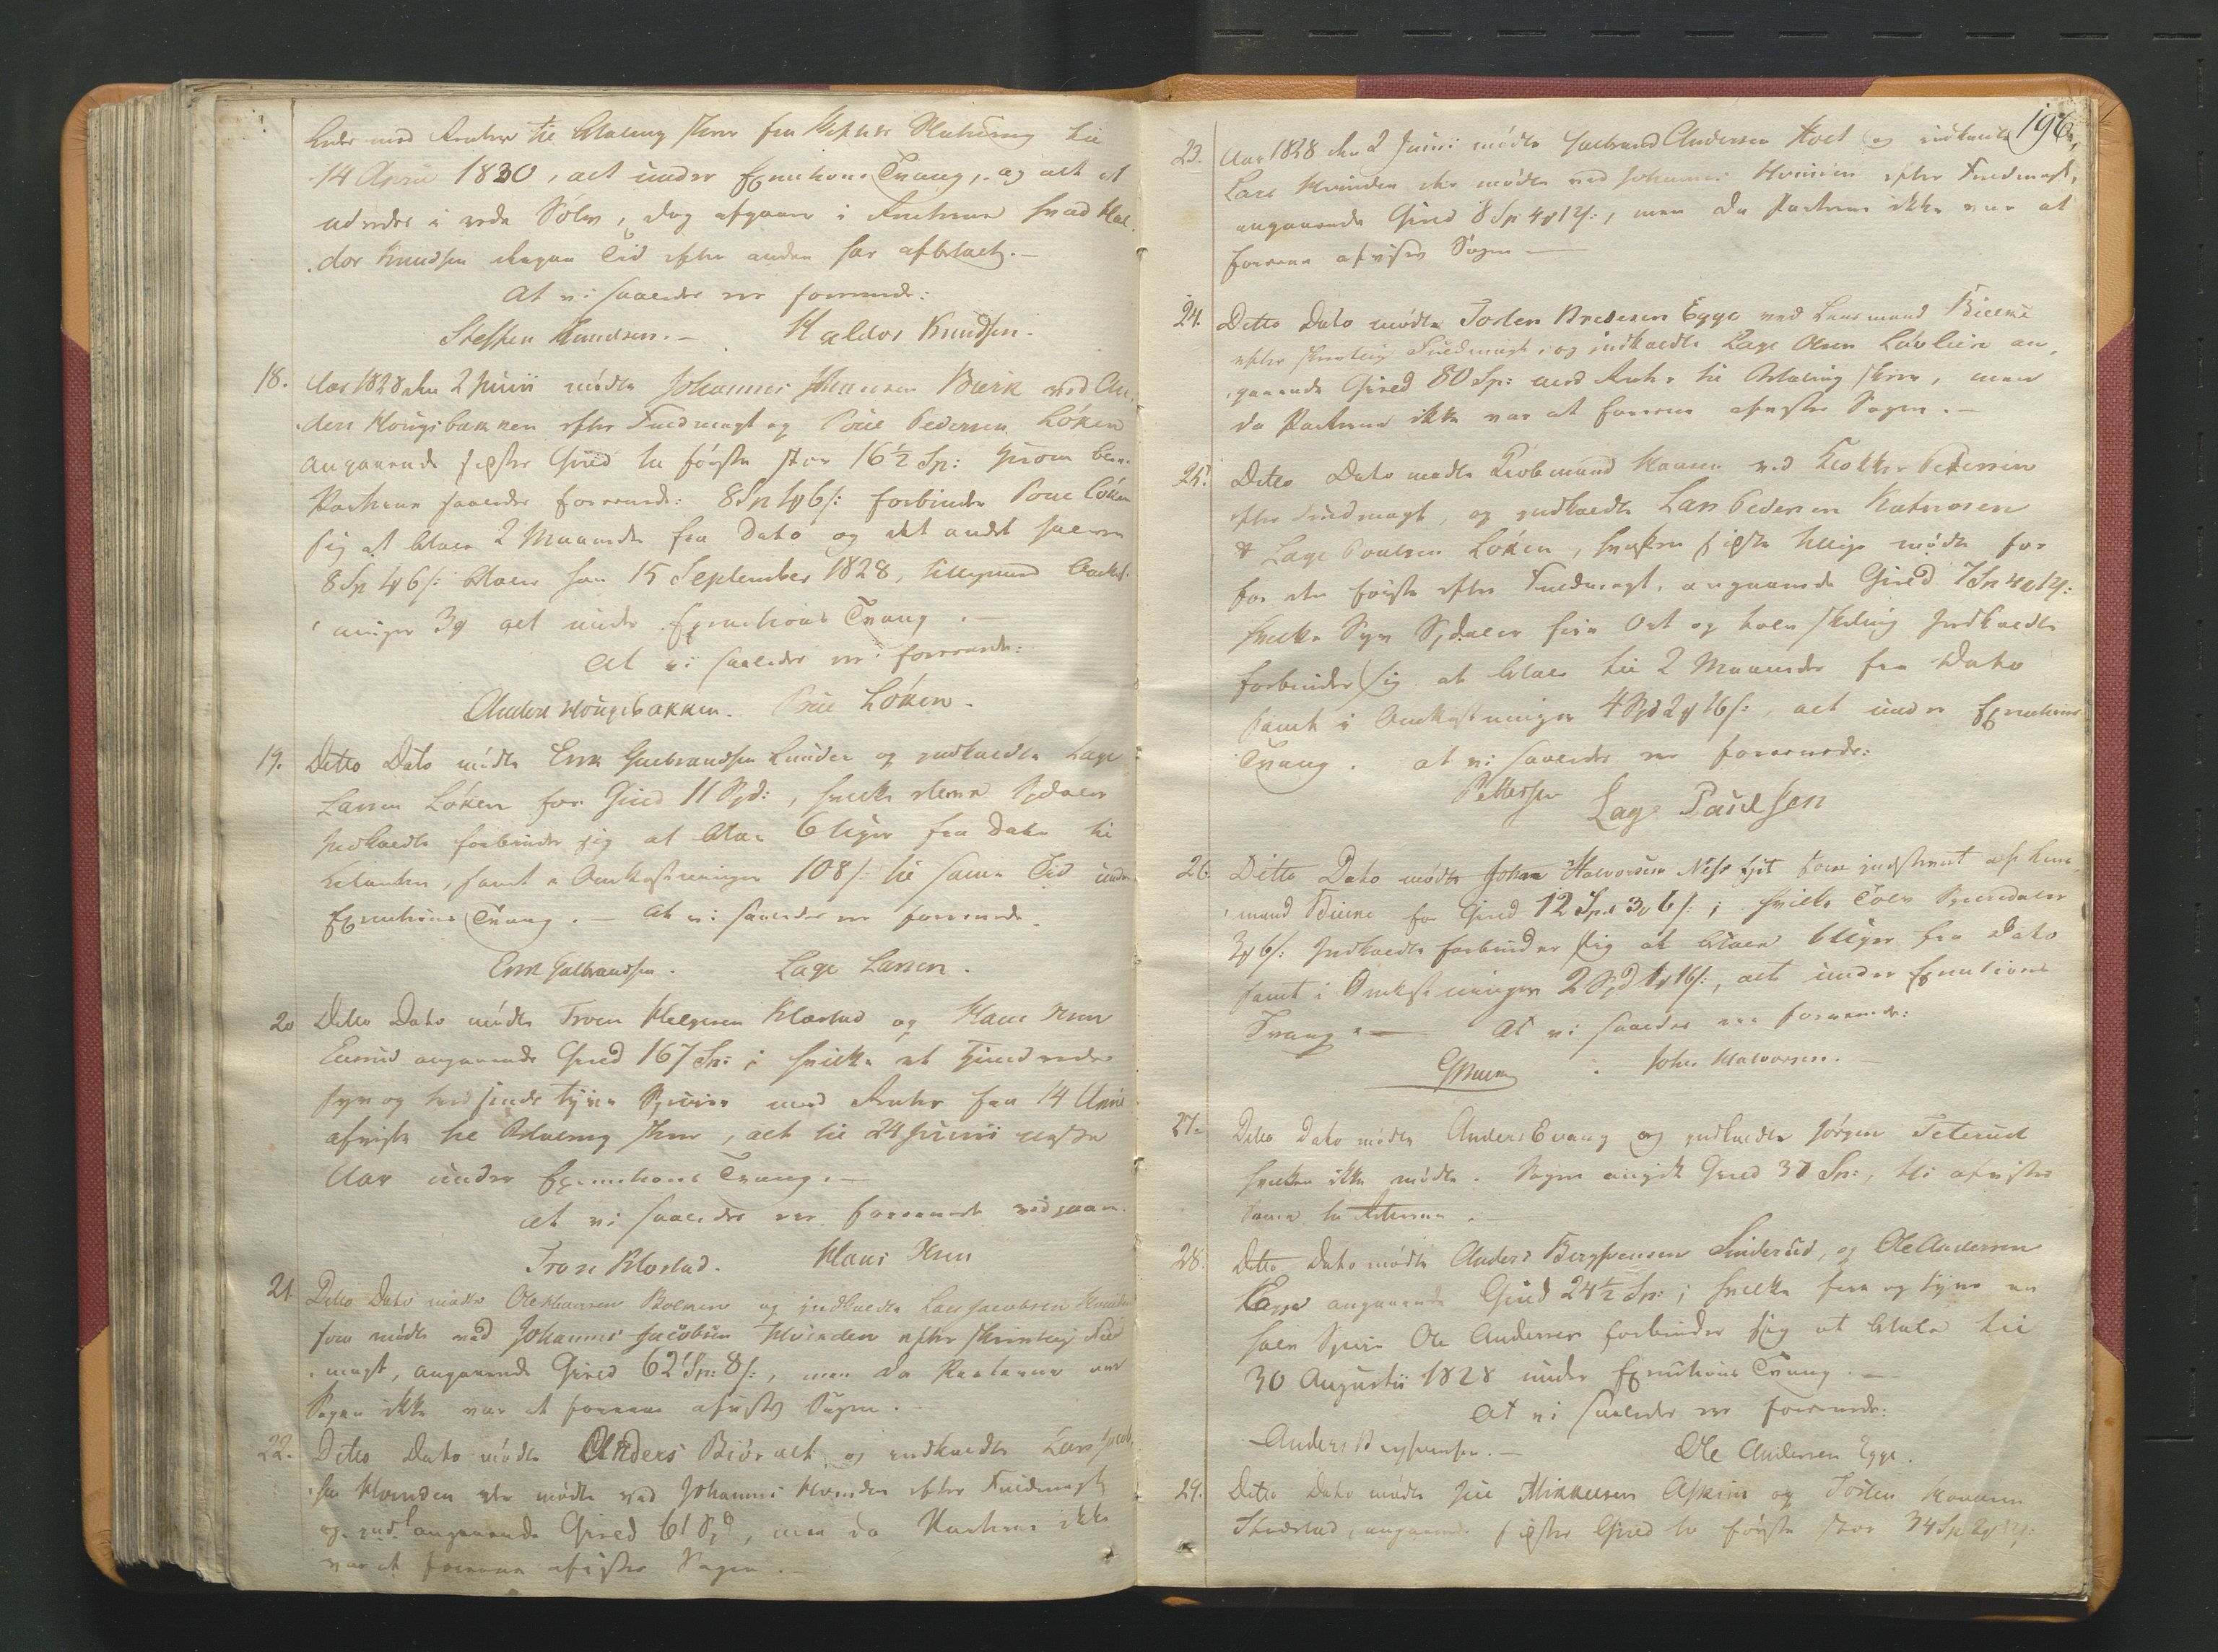 med Renter til Betaling skeer fra
14 April 1830, alt under Executions Tvang, og alt at
udredes i rede Sølv, dog afgaaer i Renterne hvad Hal¬
dor Knudsen nogen Tid efter anden har afbetalt.
At vi saaledes ere forenede:
Steffen Knudsen. Haldor Knudsen.
18. Aar 1828 den 2 Junii mødte Johannes Johansen Bierk ved An¬
ders Hougsbakken efter Fuldmagt og Poul Pedersen Løken
angaaende sidstes Gield til første stor 16½ Sp: hvorom
Parterne saaledes forenede: 8 Sp 1 ₰ 6 s: forbinder Poul Løken
sig at betale 2 Maaneder fra Dato og det andet halve
8 Sp 1 ₰ 6 s: betales han 15 September 1828, tilligemed Omkost¬
ninger 3 ₰ alt under Executions Tvang.
At vi saaledes ere forenede:
Anders Hougsbakken. Poul Løken.
19. Ditto Dato mødte Erik Gulbrandsen Lunder og indkaldte Lage
Larsen Løken for Gield 11 Spd:, hvilke elleve Spdaler
Indkaldte forbinder sig at betale 6 Uger fra Dato til
Citanten, samt i Omkostninger 108 s: til samme Tid under
Executions Tvang. At vi saaledes ere forenede
Erik Gulbrandsen. Lage Larsen.
20 Ditto Dato mødte Tron Helgesen Klastad og Hans Iversen
angaaende Gield 167 Sp: hvilke et Hundrede
syv og tredsindstyve Specier med Renter fra 14 April
afvigte til Betaling skeer, alt til 24 Junii næste
Aar under Executions Tvang.
At vi saaledes ere forenede vedgaaes.
Tron Klastad. Hans
21 Ditto Dato mødte Ole Hansen og indkaldte Lars Jacobsen
som mødte ved Johannes Jacobsen Hvinden efter skriftlig Fuld¬
magt, angaaende Gield 62 Sp: 8 s:, men da Parterne
Sagen ikke var at forene afvistes Sagen.
22. Ditto Dato mødte Anders Biøralt og indkaldte Lars Jacob¬
sen Hvinden der mødte ved Johannes Hvinden efter Fuldmagt
angaaende Gield 61 Spd, men da Parterne ikke
var at forene afvistes Sagen.
196
23. Aar 1828 den 2 Junii mødte Gulbrand Andersen Hoel og indkaldte
Lars Hvinden der mødte ved Johannes Hvinden efter Fuldmagt,
angaaende Gield 8 Sp 4 ₰ 12 s:, men da Parterne ikke var at
forene afvistes Sagen
24. Ditto Dato mødte Tosten Bredesen Egge ved Lensmand Bierke
efter skriftlig Fuldmagt, og indkaldte Lage Olsen Løvlien an¬
gaaende Gield 80 Sp: med Renter til Betaling skeer, men
da Parterne ikke var at forene afvistes Sagen.
25. Ditto Dato mødte Kiøbmand Hansen ved Klokker Pettersen
efter Fuldmagt, og indkaldte Lars Pedersen
& Lage Poulsen Løken, hvilken sidste tillige mødte for
for den første efter Fuldmagt, angaaende Gield 7 Sp 4 ₰ 12 s:
hvilke Syv Spdaler fire Ort og tolv Skilling Indkaldte
forbinder sig at betale til 2 Maaneder fra Dato
samt i Omkostninger 4 Spd 2 ₰ 16 s:, alt under Executions
Tvang. At vi saaledes ere forenede:
Pettersen Lage Paulsen
26. Ditto Dato mødte John Halvorsen som indstevnt af Lens¬
mand Bierke for Gield 12 Spd 3 ₰ 6 s:; hvilke Tolv Speciedaler
3 ₰ 6 s: Indkaldte forbinder sig at betale 6 Uger fra Dato
samt i Omkostninger 2 Spd 1 ₰ 16 s:, alt under Executions
Tvang. At vi saaledes ere forenede:
John Halvorsen.
27. Ditto Dato mødte Anders Evang og indkaldte Jørgen Teterud
hvilken ikke mødte. Sagen angik Gield 37 Sp:, thi afvistes
samme til Retten.
28. Ditto Dato mødte Anders Bergsvensen Sinderud, og Ole Andersen
Egge angaaende Gield 24½ Sp:; hvilke fire og tyve en
halv Specie Ole Andersen forbinder sig at betale til
30 Augustii 1828 under Executions Tvang.
At vi saaledes ere forenede:
Anders Bergsvensen. Ole Andersen Egge.
29. Ditto Dato mødte Juel Mikkelsen Askim og Tosten Hansen
angaaende sidstes Gield til første stor 34 Sp 2 ₰ 12 s: